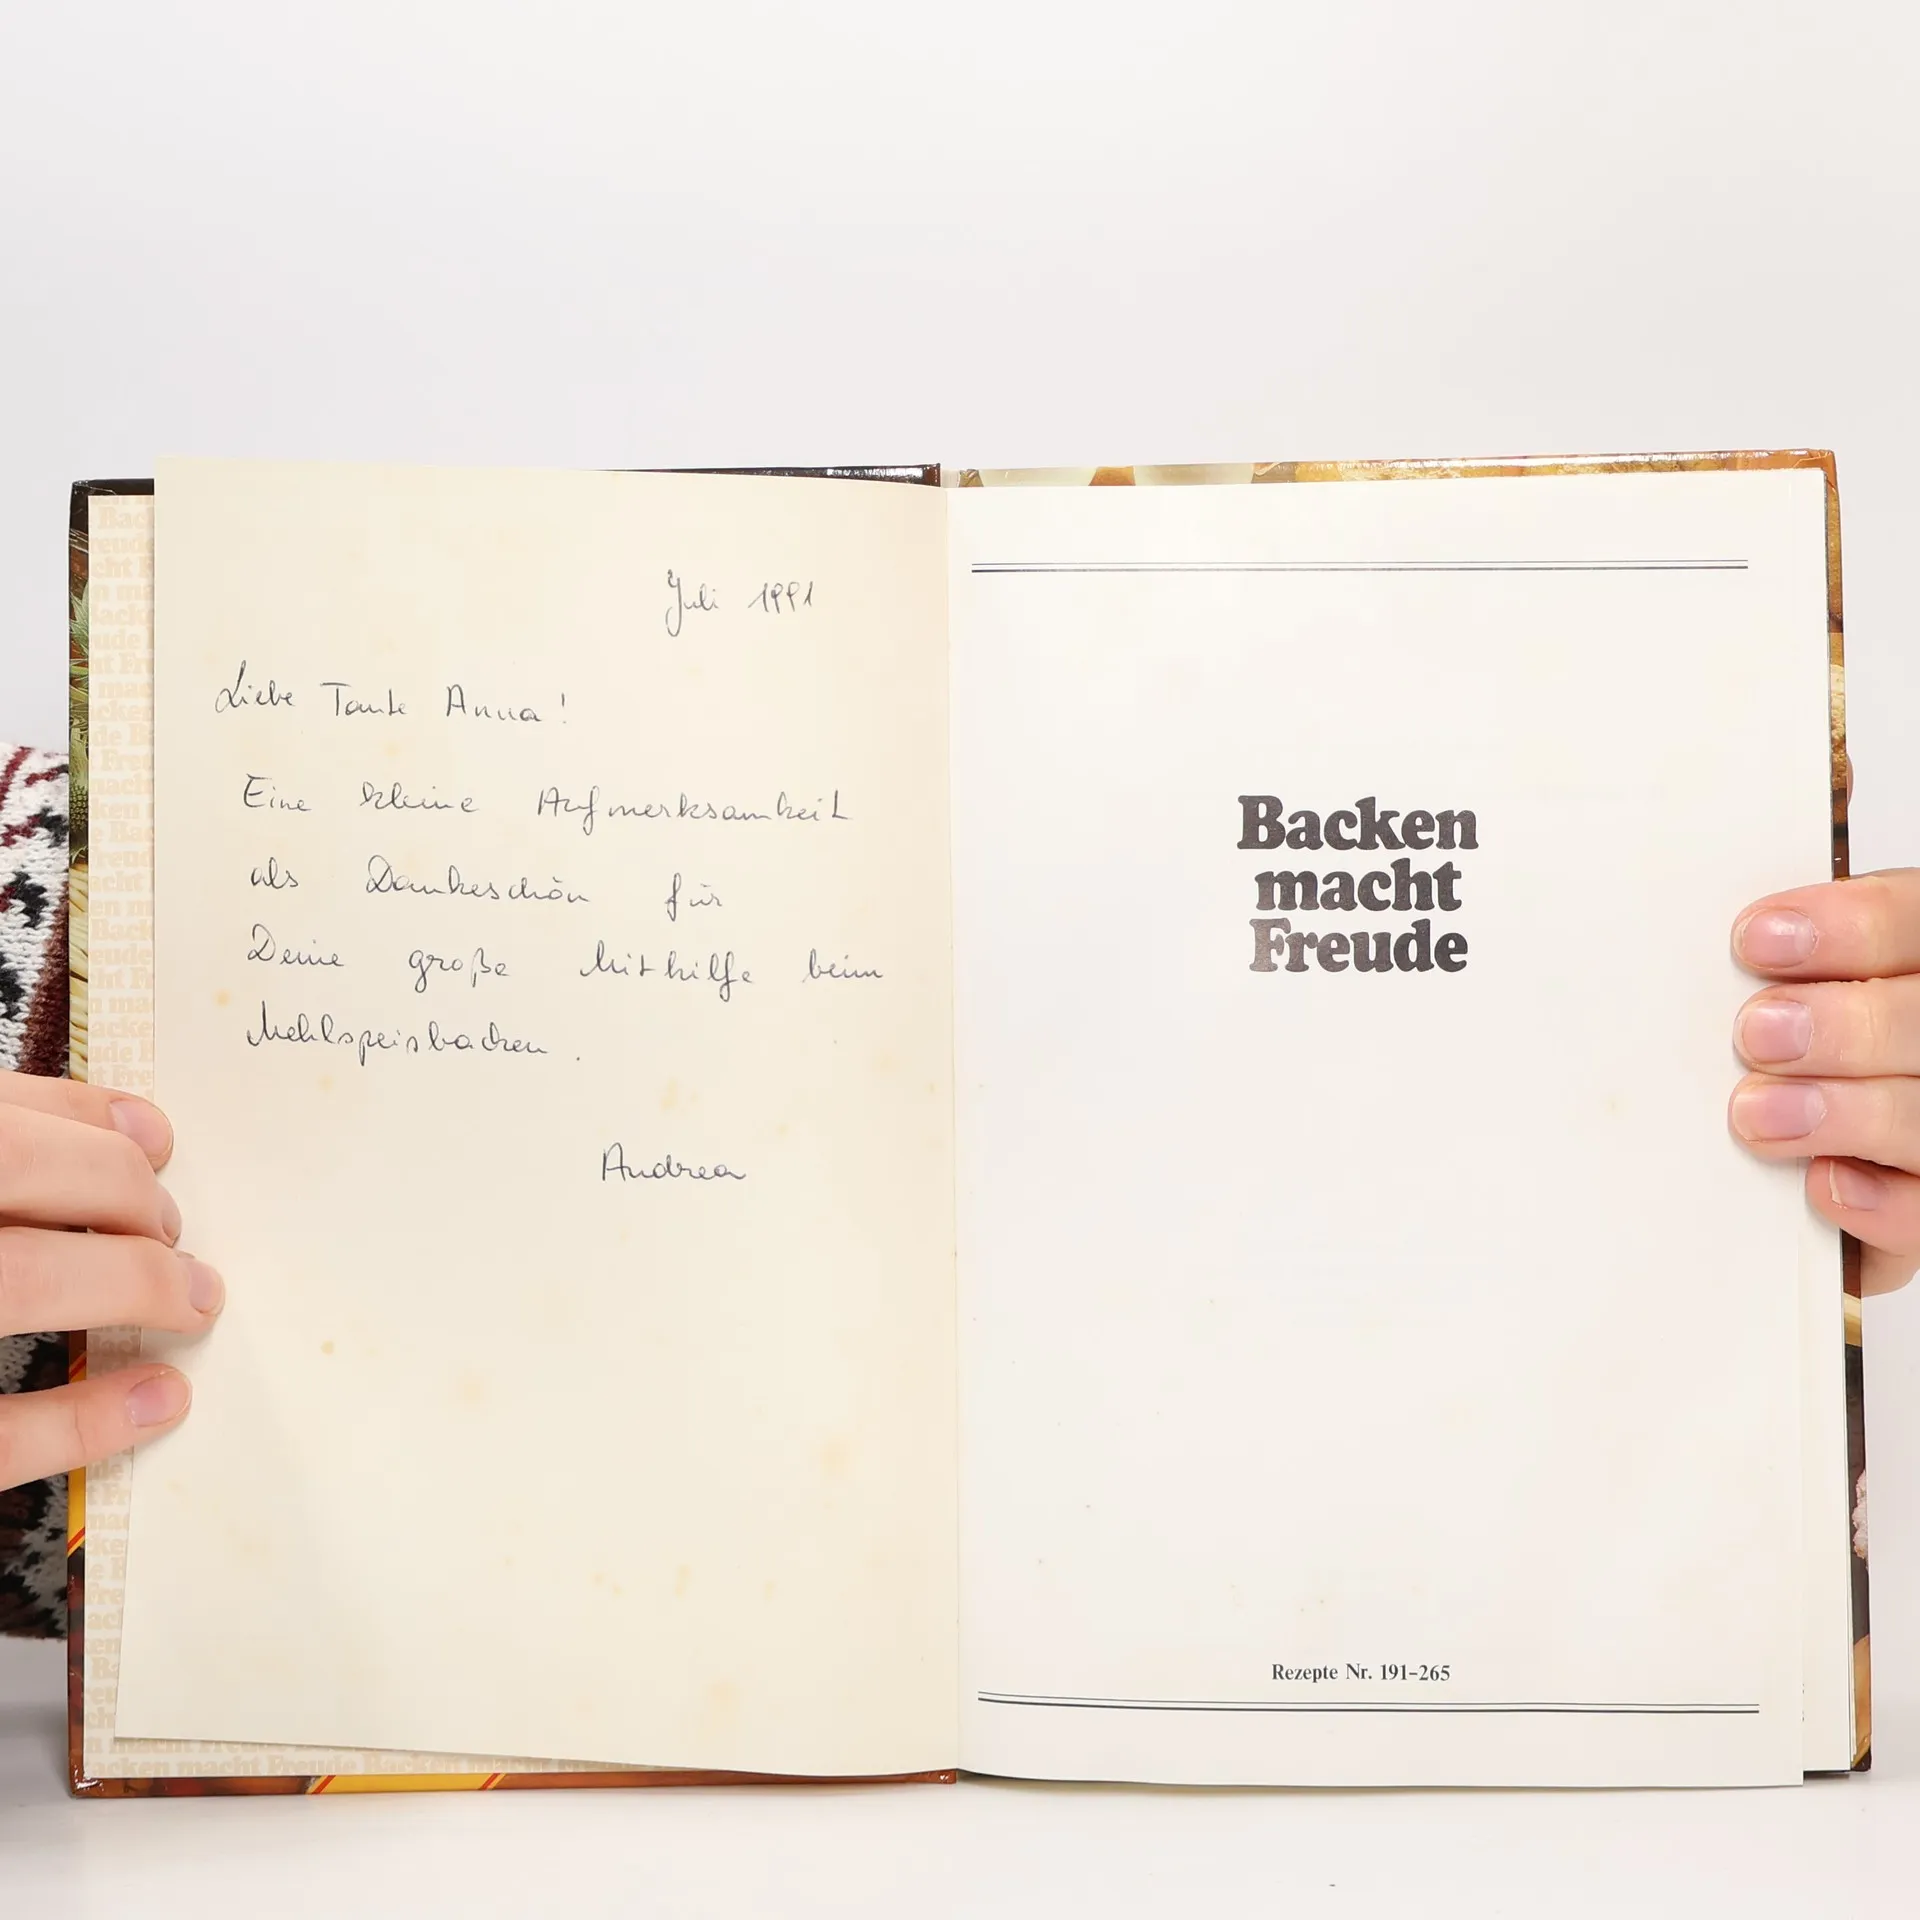 Juli 1991
Liebe Tante Anna!
Eine kleine Aufmerksamkeit
als Dankeschön für
Deine große Mithilfe beim
Mehlspeisbacken.
Andrea
Backen
macht
Freude
Rezepte Nr. 191-265